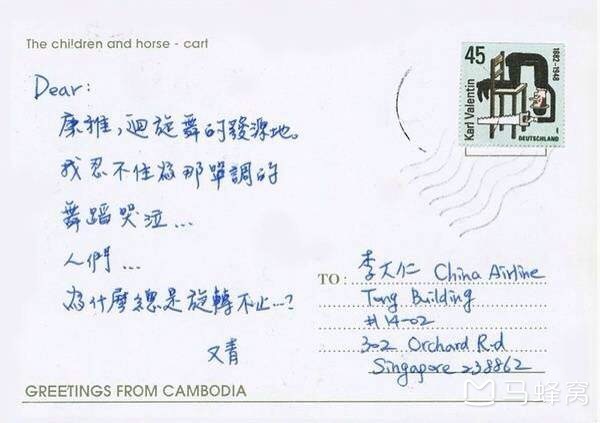 The children and horse - cart
45
1882-1948
Karl Valentin
DEUTSCHLAND
Dear:
康雅,迴旋舞的發源地。
我忍不住為那單調的
舞蹈哭泣...
人們...
為什麼總是旋轉不止...?
又青
TO:
李大仁 China Airline
Tong Building
#14-02
302 Orchard Rd
Singapore 238862
GREETINGS FROM CAMBODIA
马蜂窝